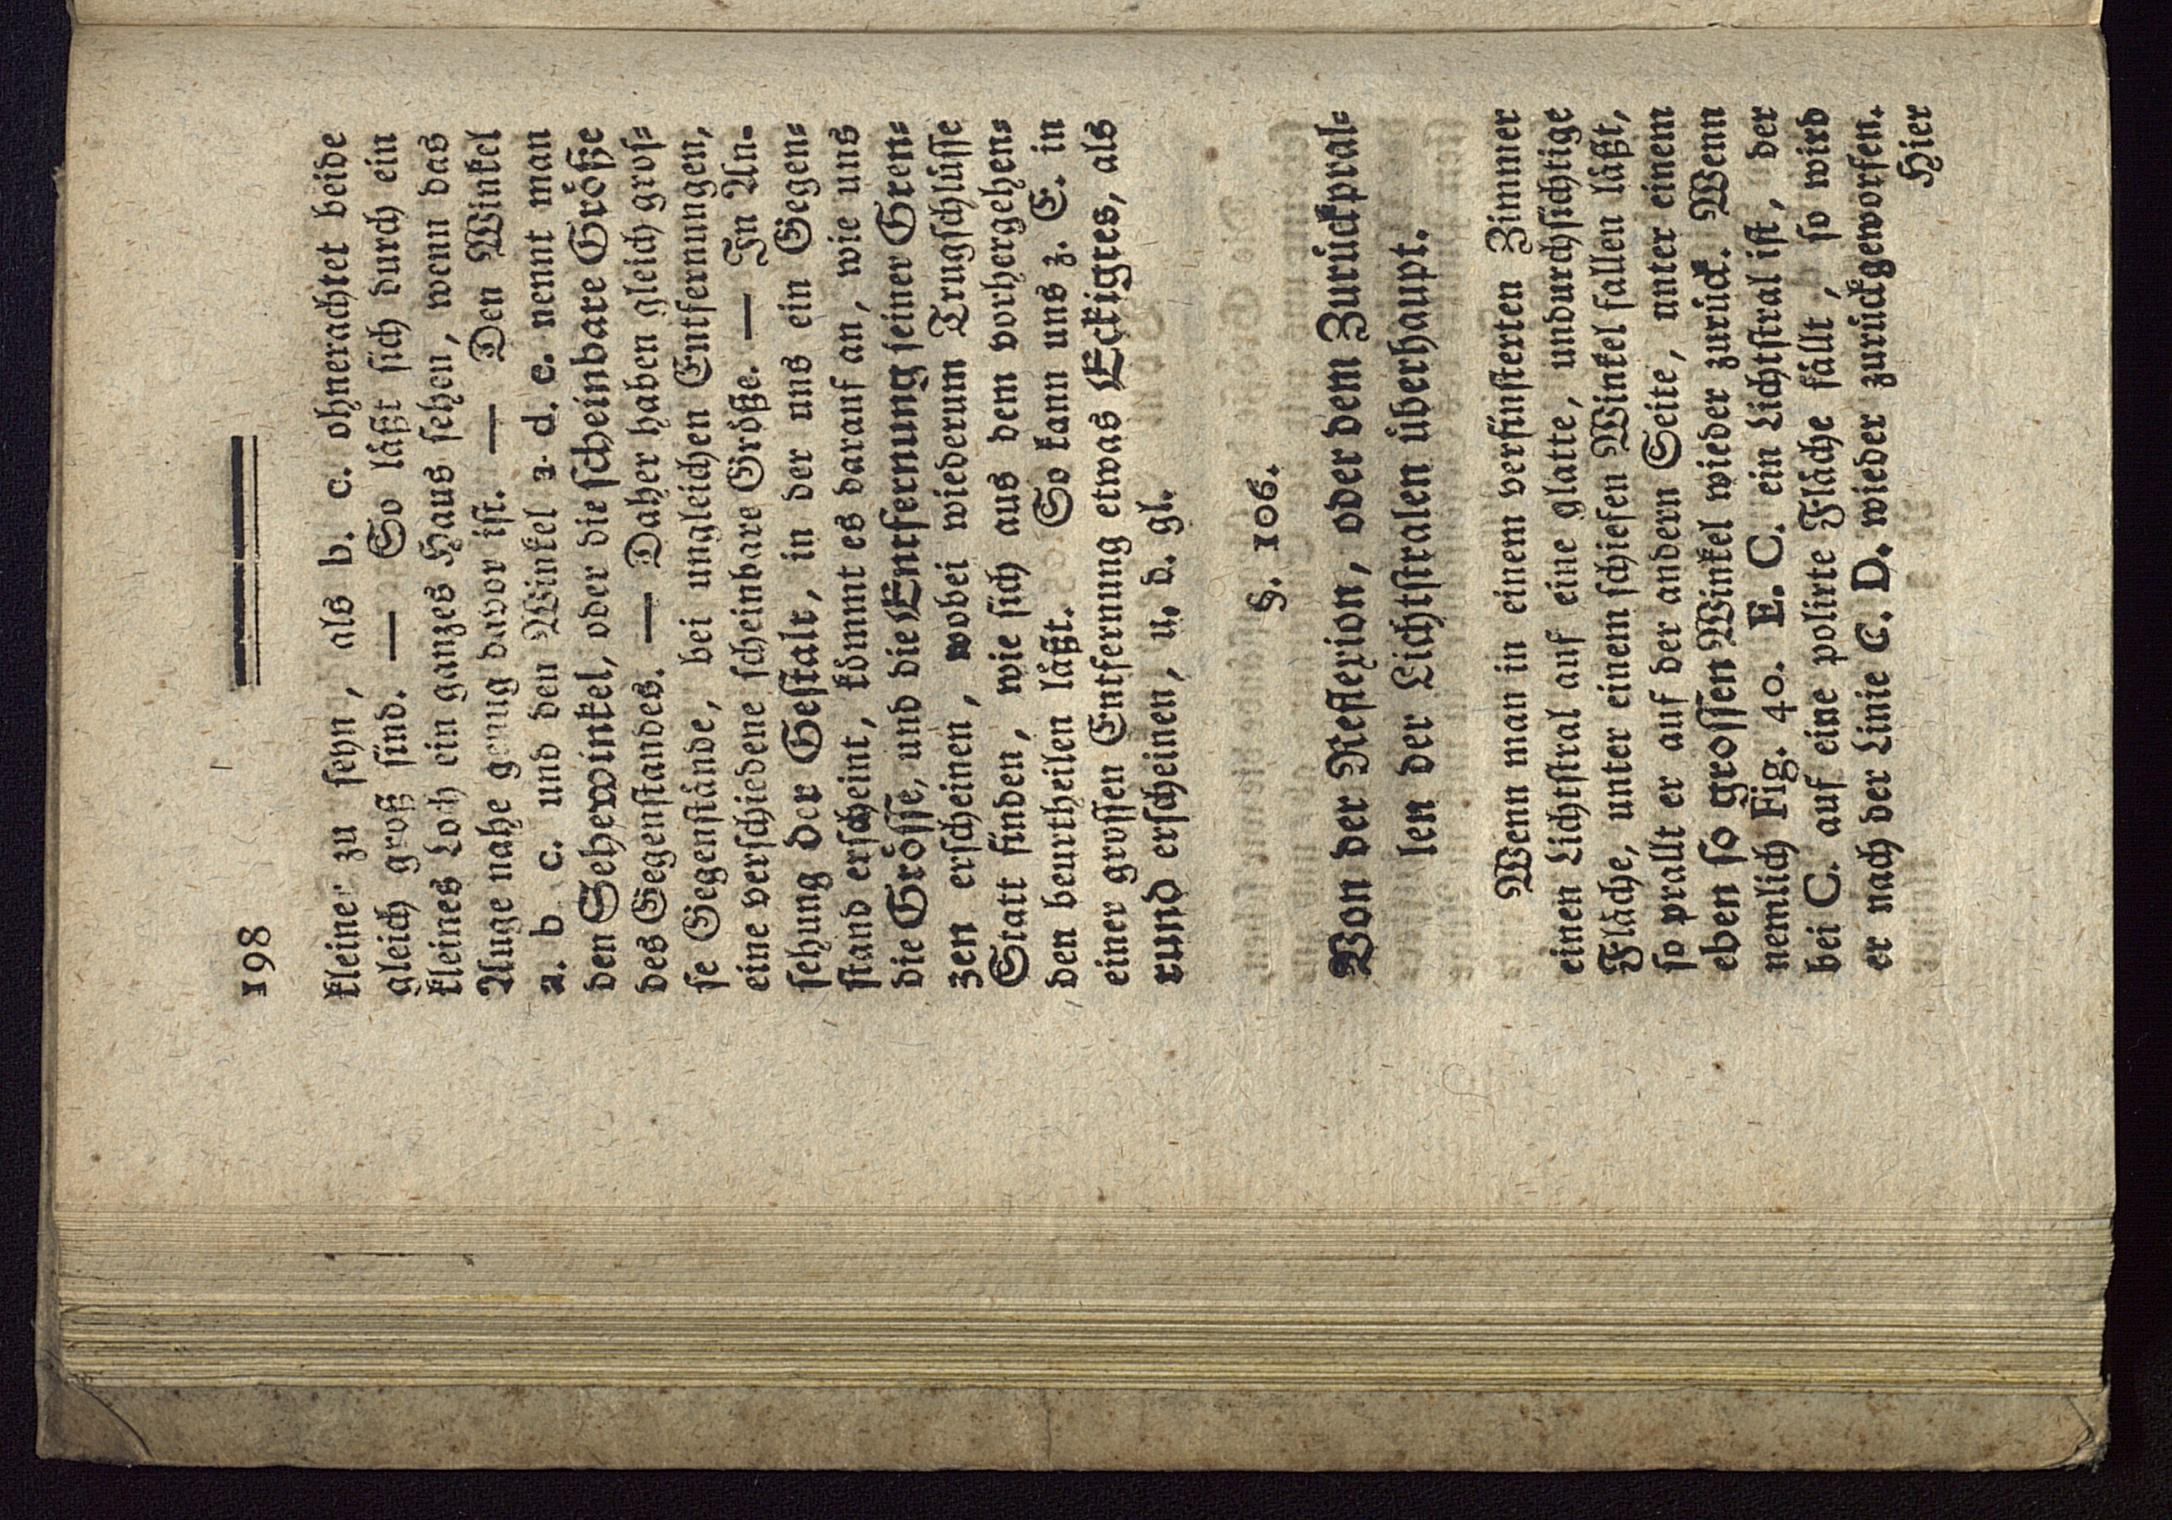 198
kleiner zu seyn, als b. c. ohnerachtet beide
gleich groß sind. — So läßt sich durch ein
kleines Loch ein ganzes Haus sehen, wenn das
Auge nahe genug davor ist. — Den Winkel
a. b c. und den Winkel a. d. c. nennt man
den Sehewinkel, oder die scheinbare Größe
des Gegenstandes. — Daher haben gleich gros⸗
se Gegenstände, bei ungleichen Entfernungen,
eine verschiedene scheinbare Größe. — In An⸗
sehung der Gestalt, in der uns ein Gegen⸗
stand erscheint, kömmt es darauf an, wie uns
die Grösse, und die Entfernung seiner Gren⸗
zen erscheinen, wobei wiederum Trugschlüsse
Statt finden, wie sich aus dem vorhergehen⸗
den beurtheilen läßt. So kann uns z. E. in
einer grossen Entfernung etwas Eckigtes, als
rund erscheinen, u. d. gl.
§. 106.
Von der Reflexion, oder dem Zurückpral⸗
len der Lichtstralen überhaupt.
Wenn man in einem verfinsterten Zimmer
einen Lichtstral auf eine glatte, undurchsichtige
Fläche, unter einem schiefen Winkel fallen läßt,
so prallt er auf der andern Seite, unter einem
eben so grossen Winkel wieder zurück. Wenn
nemlich Fig. 40. E. C. ein Lichtstral ist, der
bei C. auf eine polirte Fläche fällt, so wird
er nach der Linie C. D. wieder zurückgeworfen.
Hier